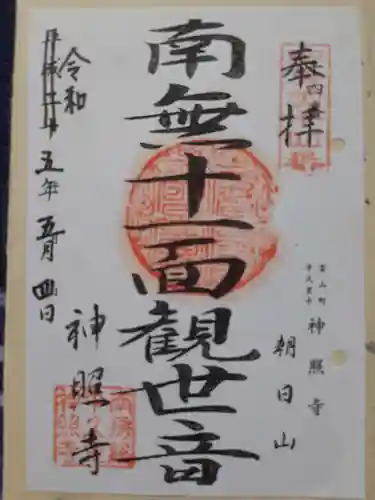 奉拝
富山町
神照寺
朝日山
南無十一面観世音
令和
五年五月四日
神照寺